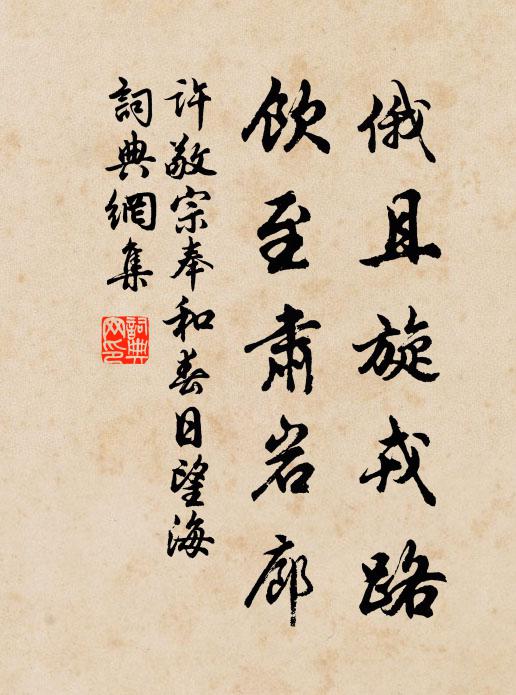 俄且旋戎路
飲至肅岩廊
许敬宗奉和春日望海
詞典網集
詞典網印